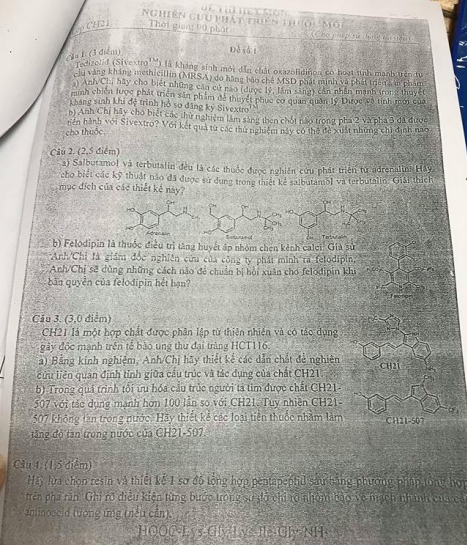 ĐỀ THI HẾT MÔN
NGHIÊN CỨU PHÁT TRIỂN THUỐC MỚI
CH21 Thời gian: 90 phút
Đề số 1
Câu 1. (3 điểm)
Tedizolid (Sivextro™) là kháng sinh mới dẫn chất oxazolidinon có hoạt tính mạnh trên tụ
cầu vàng kháng methicillin (MRSA) do hãng bào chế MSD phát minh và phát triển sản phẩm.
a) Anh/Chị hãy cho biết những căn cứ nào (dược lý, lâm sàng) cần nhấn mạnh trong thuyết
minh chiến lược phát triển sản phẩm để thuyết phục cơ quan quản lý Dược về tính mới của
kháng sinh khi đệ trình hồ sơ đăng ký Sivextro
b) Anh/Chị hãy cho biết các thử nghiệm lâm sàng then chốt nào trong pha 2 và pha 3 đã được
tiến hành với Sivextro? Với kết quả từ các thử nghiệm này có thể đề xuất những chỉ định nào
cho thuốc.
Câu 2. (2,5 điểm)
a) Salbutamol và terbutalin đều là các thuốc được nghiên cứu phát triển từ adrenalin. Hãy
cho biết các kỹ thuật nào đã được sử dụng trong thiết kế salbutamol và terbutalin. Giải thích
mục đích của các thiết kế này?
Adrenalin Salbutamol Terbutalin
b) Felodipin là thuốc điều trị tăng huyết áp nhóm chẹn kênh calci. Giả sử
Anh/Chị là giám đốc nghiên cứu của công ty phát minh ra felodipin,
Anh/Chị sẽ dùng những cách nào để chuẩn bị hồi xuân cho felodipin khi
bản quyền của felodipin hết hạn?
Felodipin
Câu 3. (3,0 điểm)
CH21 là một hợp chất được phân lập từ thiên nhiên và có tác dụng
gây độc mạnh trên tế bào ung thư đại tràng HCT116.
a) Bằng kinh nghiệm, Anh/Chị hãy thiết kế các dẫn chất để nghiên
cứu liên quan định tính giữa cấu trúc và tác dụng của chất CH21.
CH21
b) Trong quá trình tối ưu hóa cấu trúc người ta tìm được chất CH21-
507 với tác dụng mạnh hơn 100 lần so với CH21. Tuy nhiên CH21-
507 không tan trong nước. Hãy thiết kế các loại tiền thuốc nhằm làm
tăng độ tan trong nước của CH21-507.
CH21-507
Câu 4. (1,5 điểm)
Hãy lựa chọn resin và thiết kế 1 sơ đồ tổng hợp pentapeptid sau bằng phương pháp tổng hợp
trên pha rắn. Ghi rõ điều kiện từng bước trong sơ đồ, chỉ rõ nhóm bảo vệ mạch nhánh của
aminoacid tương ứng (nếu cần).
HOOC-Lys-Gly-Lys-Ile-Gly-NH